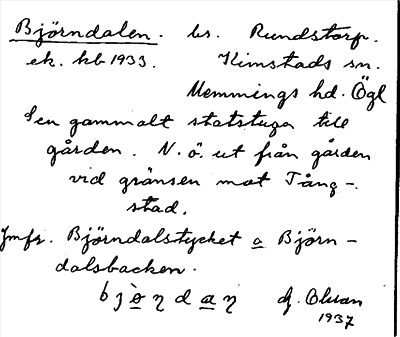 Björndalen. bs. Rundstorp.
ek. kb 1933. Kimstads sn.
Memmings hd. Ögl
En gammalt statstuga till
gården. N. ö. ut från gården
vid gränsen mot Tång-
stad.
Jmfr. Björndalstycket o Björn-
dalsbacken.
1937